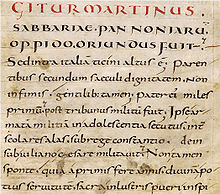 GITUR MARTINUS.
SABBARIAE. PANNONIARU.
OPPIDO. ORIUNDUS FUIT.
Sed intra italiā ticini altus ē; Paren
tibus secundum saeculi dignitatem. Non
infimis, gentilib; tamen. Pater ei miles
primū, post tribunus militū fuit; Ipse ar
matā militiā in adolescentia secutus, int
scolares alas, sub rege constantio, dein
sub iuliano cesare militauit; Non tamen
sponte, quia a primis fere annis diuinā po
tius seruitutē, sacra inlustris pueri inspi